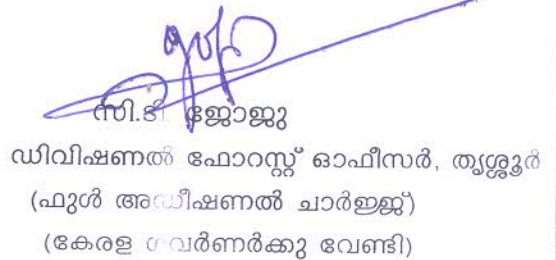 സി.ടി. ജോജു
ഡിവിഷണൽ ഫോറസ്റ്റ് ഓഫീസർ, തൃശ്ശൂർ
(ഫുൾ അഡീഷണൽ ചാർജ്ജ്)
(കേരള ഗവർണർക്കു വേണ്ടി)